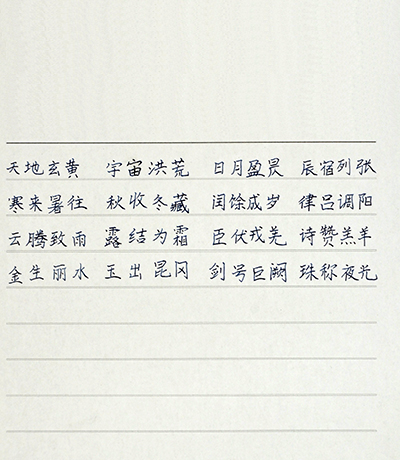 天地玄黄 宇宙洪荒 日月盈昃 辰宿列张
寒来暑往 秋收冬藏 闰馀成岁 律吕调阳
云腾致雨 露结为霜 臣伏戎羌 诗赞羔羊
金生丽水 玉出昆冈 剑号巨阙 珠称夜光